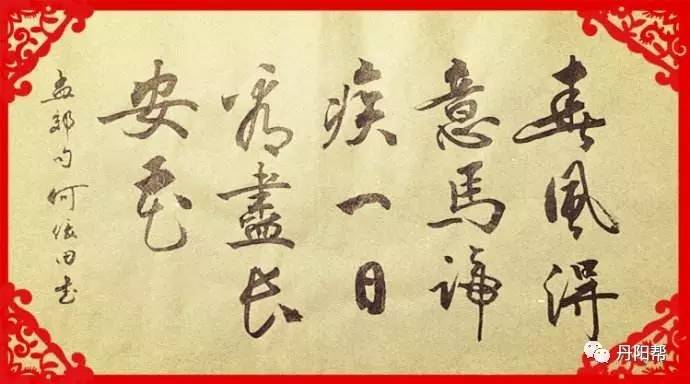 春風得
意馬蹄
疾一日
看盡長
安花
孟郊句何田書
丹阳帮